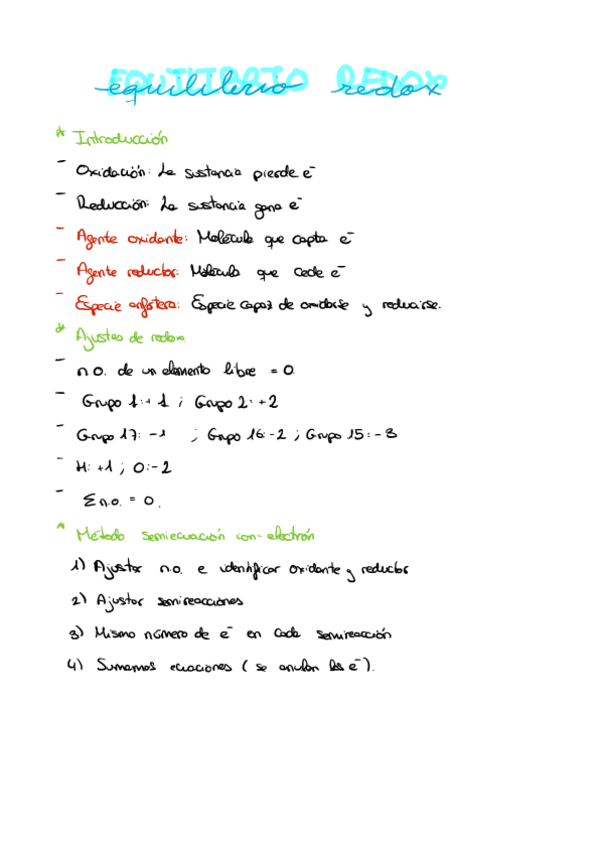 EQUILIBRIO REDOX
equilibrio redox
* Introducción
- Oxidación: La sustancia pierde e⁻
- Reducción: La sustancia gana e⁻
- Agente oxidante: Molécula que capta e⁻
- Agente reductor: Molécula que cede e⁻
- Especie anfótera: Especie capaz de oxidarse y reducirse.
* Ajustes de redox
- n.o. de un elemento libre = 0
- Grupo 1: + 1 ; Grupo 2: +2
- Grupo 17: -1 ; Grupo 16: -2 ; Grupo 15: -3
- H: +1 ; O: -2
- Σ n.o. = 0.
* Método semiecuación ion-electrón
1) Ajustar n.o. e identificar oxidante y reductor
2) Ajustar semireacciones
3) Mismo número de e⁻ en cada semireacción
4) Sumamos ecuaciones ( se anulan los e⁻).